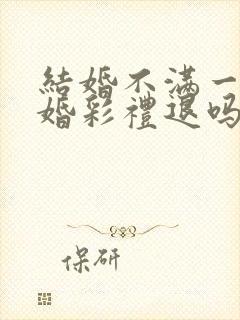 結婚不滿一
婚彩禮退吗
保研